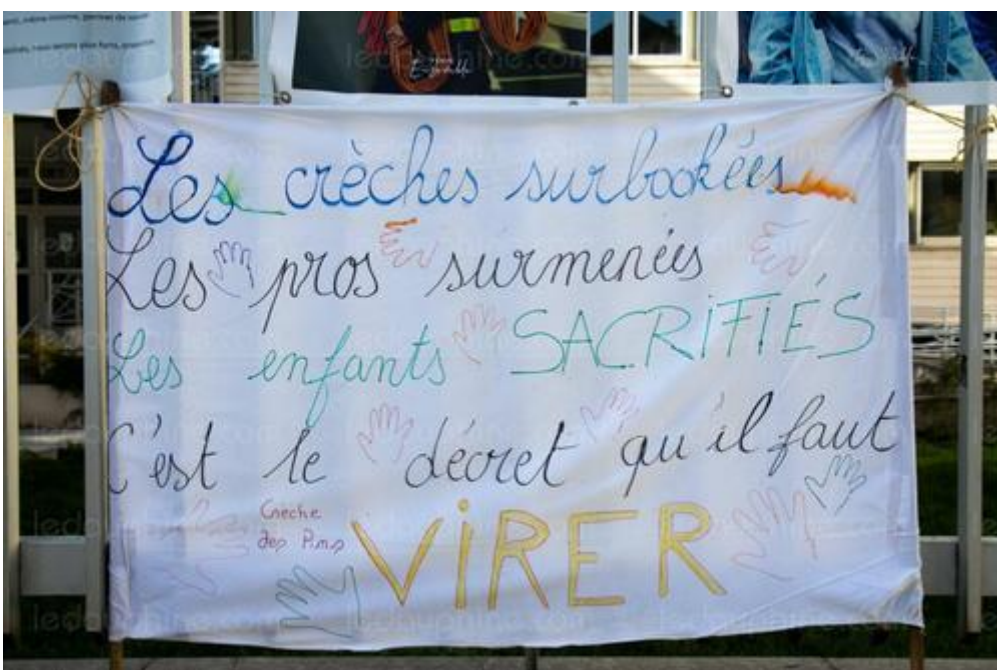 Les crèches surbookées
Les pros surmenées
Les enfants SACRIFIÉS
C'est le décret qu'il faut
VIRER
Crèche
des P.m.s
ledauphine.com